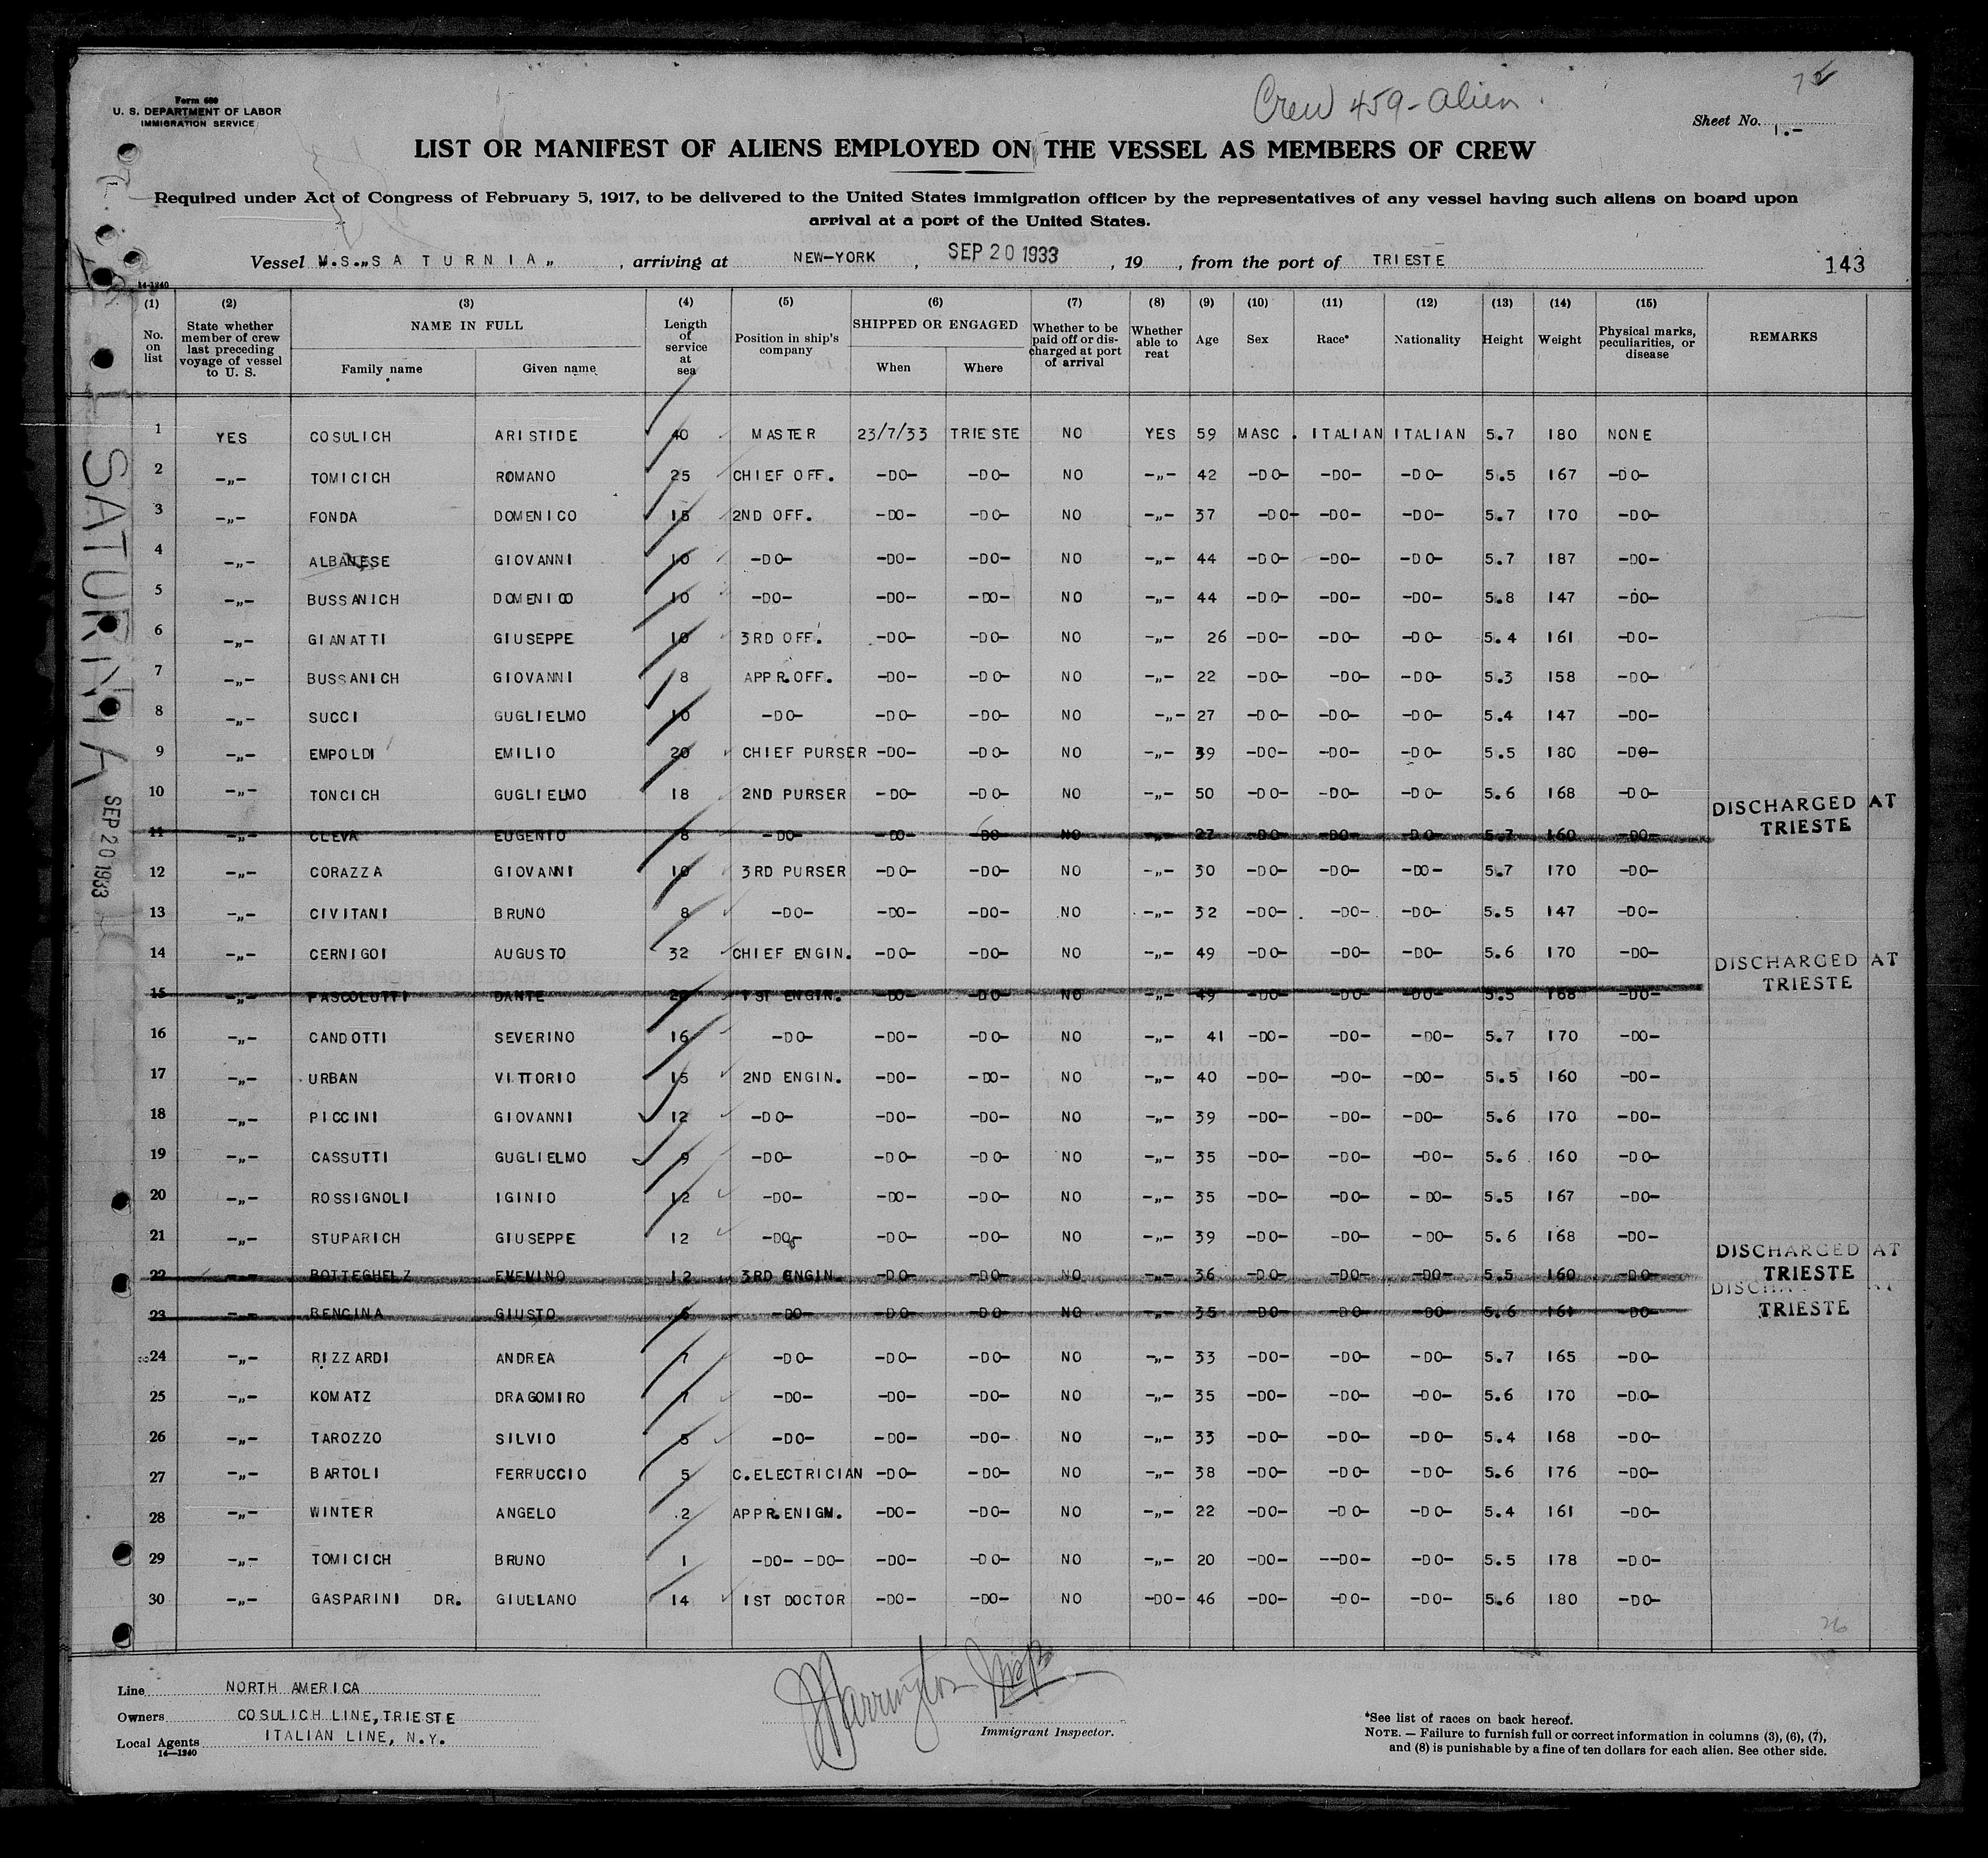 Crew 459 - alien
Form 680
U. S. DEPARTMENT OF LABOR
IMMIGRATION SERVICE
Sheet No. 1.-
LIST OR MANIFEST OF ALIENS EMPLOYED ON THE VESSEL AS MEMBERS OF CREW
Required under Act of Congress of February 5, 1917, to be delivered to the United States immigration officer by the representatives of any vessel having such aliens on board upon
arrival at a port of the United States.
Vessel M.S.„S A T U R N I A„ , arriving at NEW-YORK , SEP 20 1933 , 19 , from the port of TRIESTE 143
14-1240
(1) No. on list (2) State whether member of crew last preceding voyage of vessel to U. S. (3) NAME IN FULL Family name Given name (4) Length of service at sea (5) Position in ship's company (6) SHIPPED OR ENGAGED When Where (7) Whether to be paid off or discharged at port of arrival (8) Whether able to reat (9) Age (10) Sex (11) Race* (12) Nationality (13) Height (14) Weight (15) Physical marks, peculiarities, or disease REMARKS
1 YES COSULICH ARISTIDE 40 MASTER 23/7/33 TRIESTE NO YES 59 MASC. ITALIAN ITALIAN 5.7 180 NONE
2 -„- TOMICICH ROMANO 25 CHIEF OFF. -DO- -DO- NO -„- 42 -DO- -DO- -DO- 5.5 167 -DO-
3 -„- FONDA DOMENICO 15 2ND OFF. -DO- -DO- NO -„- 37 -DO- -DO- -DO- 5.7 170 -DO-
4 -„- ALBANESE GIOVANNI 10 -DO- -DO- -DO- NO -„- 44 -DO- -DO- -DO- 5.7 187 -DO-
5 -„- BUSSANICH DOMENICO 10 -DO- -DO- -DO- NO -„- 44 -DO- -DO- -DO- 5.8 147 -DO-
6 -„- GIANATTI GIUSEPPE 10 3RD OFF. -DO- -DO- NO -„- 26 -DO- -DO- -DO- 5.4 161 -DO-
7 -„- BUSSANICH GIOVANNI 8 APPR.OFF. -DO- -DO- NO -„- 22 -DO- -DO- -DO- 5.3 158 -DO-
8 -„- SUCCI GUGLIELMO 10 -DO- -DO- -DO- NO -„- 27 -DO- -DO- -DO- 5.4 147 -DO-
9 -„- EMPOLDI EMILIO 20 CHIEF PURSER -DO- -DO- NO -„- 39 -DO- -DO- -DO- 5.5 180 -DO-
10 -„- TONCICH GUGLIELMO 18 2ND PURSER -DO- -DO- NO -„- 50 -DO- -DO- -DO- 5.6 168 -DO-
11 -„- CLEVA EUGENIO 8 -DO- -DO- -DO- NO -„- 27 -DO- -DO- -DO- 5.7 160 -DO- DISCHARGED AT TRIESTE
12 -„- CORAZZA GIOVANNI 10 3RD PURSER -DO- -DO- NO -„- 30 -DO- -DO- -DO- 5.7 170 -DO-
13 -„- CIVITANI BRUNO 8 -DO- -DO- -DO- NO -„- 32 -DO- -DO- -DO- 5.5 147 -DO-
14 -„- CERNIGOI AUGUSTO 32 CHIEF ENGIN. -DO- -DO- NO -„- 49 -DO- -DO- -DO- 5.6 170 -DO-
15 -„- PASCOLUTTI DANTE 20 1ST ENGIN. -DO- -DO- NO -„- 49 -DO- -DO- -DO- 5.5 168 -DO- DISCHARGED AT TRIESTE
16 -„- CANDOTTI SEVERINO 16 -DO- -DO- -DO- NO -„- 41 -DO- -DO- -DO- 5.7 170 -DO-
17 -„- URBAN VITTORIO 15 2ND ENGIN. -DO- -DO- NO -„- 40 -DO- -DO- -DO- 5.5 160 -DO-
18 -„- PICCINI GIOVANNI 12 -DO- -DO- -DO- NO -„- 39 -DO- -DO- -DO- 5.6 170 -DO-
19 -„- CASSUTTI GUGLIELMO 9 -DO- -DO- -DO- NO -„- 35 -DO- -DO- -DO- 5.6 160 -DO-
20 -„- ROSSIGNOLI IGINIO 12 -DO- -DO- -DO- NO -„- 35 -DO- -DO- -DO- 5.5 167 -DO-
21 -„- STUPARICH GIUSEPPE 12 -DO- -DO- -DO- NO -„- 39 -DO- -DO- -DO- 5.6 168 -DO-
22 -„- BOTTEGHELZ EMEMINO 12 3RD ENGIN. -DO- -DO- NO -„- 36 -DO- -DO- -DO- 5.5 160 -DO- DISCHARGED AT TRIESTE
23 -„- BENCINA GIUSTO 6 -DO- -DO- -DO- NO -„- 35 -DO- -DO- -DO- 5.6 161 -DO- DISCHARGED AT TRIESTE
24 -„- RIZZARDI ANDREA 7 -DO- -DO- -DO- NO -„- 33 -DO- -DO- -DO- 5.7 165 -DO-
25 -„- KOMATZ DRAGOMIRO 7 -DO- -DO- -DO- NO -„- 35 -DO- -DO- -DO- 5.6 170 -DO-
26 -„- TAROZZO SILVIO 5 -DO- -DO- -DO- NO -„- 33 -DO- -DO- -DO- 5.4 168 -DO-
27 -„- BARTOLI FERRUCCIO 5 C.ELECTRICIAN -DO- -DO- NO -„- 38 -DO- -DO- -DO- 5.6 176 -DO-
28 -„- WINTER ANGELO 2 APPR.ENIGN. -DO- -DO- NO -„- 22 -DO- -DO- -DO- 5.4 161 -DO-
29 -„- TOMICICH BRUNO 1 -DO- -DO- -DO- -DO- NO -„- 20 -DO- --DO- -DO- 5.5 178 -DO-
30 -„- GASPARINI DR. GIULLANO 14 1ST DOCTOR -DO- -DO- NO -DO- 46 -DO- -DO- -DO- 5.6 180 -DO-
26
SATURNIA
SEP 20 1933
Line NORTH AMERICA
Owners COSULICH LINE,TRIESTE
Local Agents ITALIAN LINE, N.Y.
14-1240
Immigrant Inspector.
*See list of races on back hereof.
NOTE. — Failure to furnish full or correct information in columns (3), (6), (7),
and (8) is punishable by a fine of ten dollars for each alien. See other side.